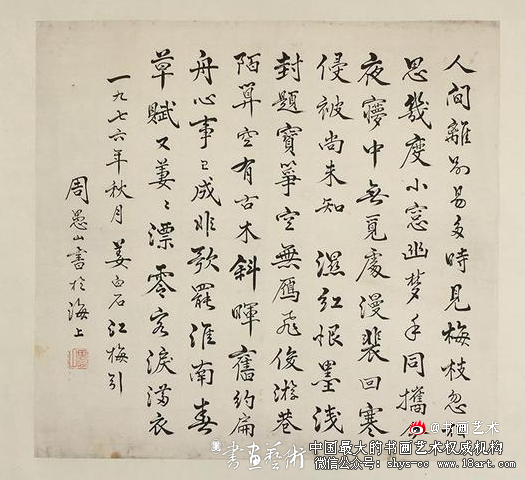 人間離別易多時見梅枝忽相
思幾度小窓幽梦手同攜今
夜夢中無覓處漫裴回寒
侵被尚未知 濕紅恨墨淺
封題寶箏空無鴈飛俊游巷
陌算空有古木斜暉舊約扁
舟心事已成非歌罷淮南春
草賦又萋〻漂零客淚滿衣
一九七六年秋月 姜白石江梅引
周愚山書於海上
@书画艺术
書畫藝術
中国最大的书画艺术权威机构
微信公众号：shys-cc www.18art.cn